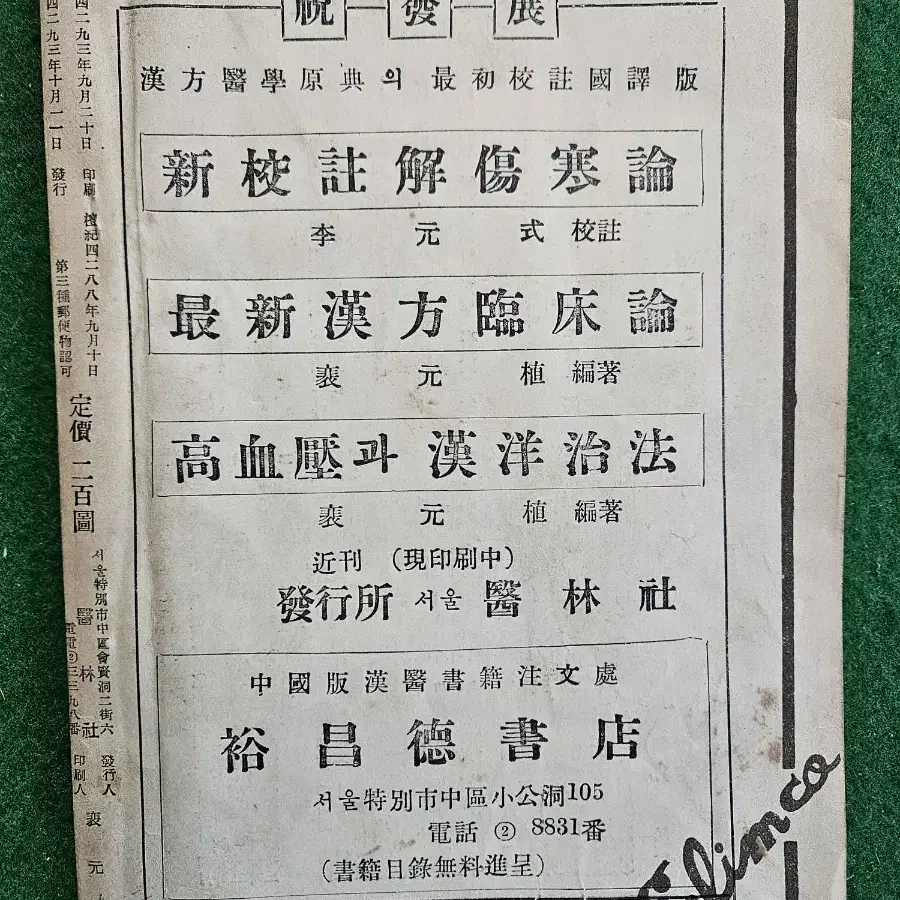 祝發展
漢方醫學原典의 最初校註國譯版
新校註解傷寒論
李元式 校註
最新漢方臨床論
裵元植 編著
高血壓과 漢洋治法
裵元植 編著
近刊 (現印刷中)
發行所 서울 醫林社
中國版漢醫書籍注文處
裕昌德書店
서울特別市中區小公洞105
電話 ② 8831番
(書籍目錄無料進呈)
檀紀四二八八年九月十日
第三種郵便物認可
四二九三年九月二十日 印刷
四二九三年十月一日 發行
定價 二百圜
서울特別市中區會賢洞二街六
醫林社
發行人
印刷人
裵元